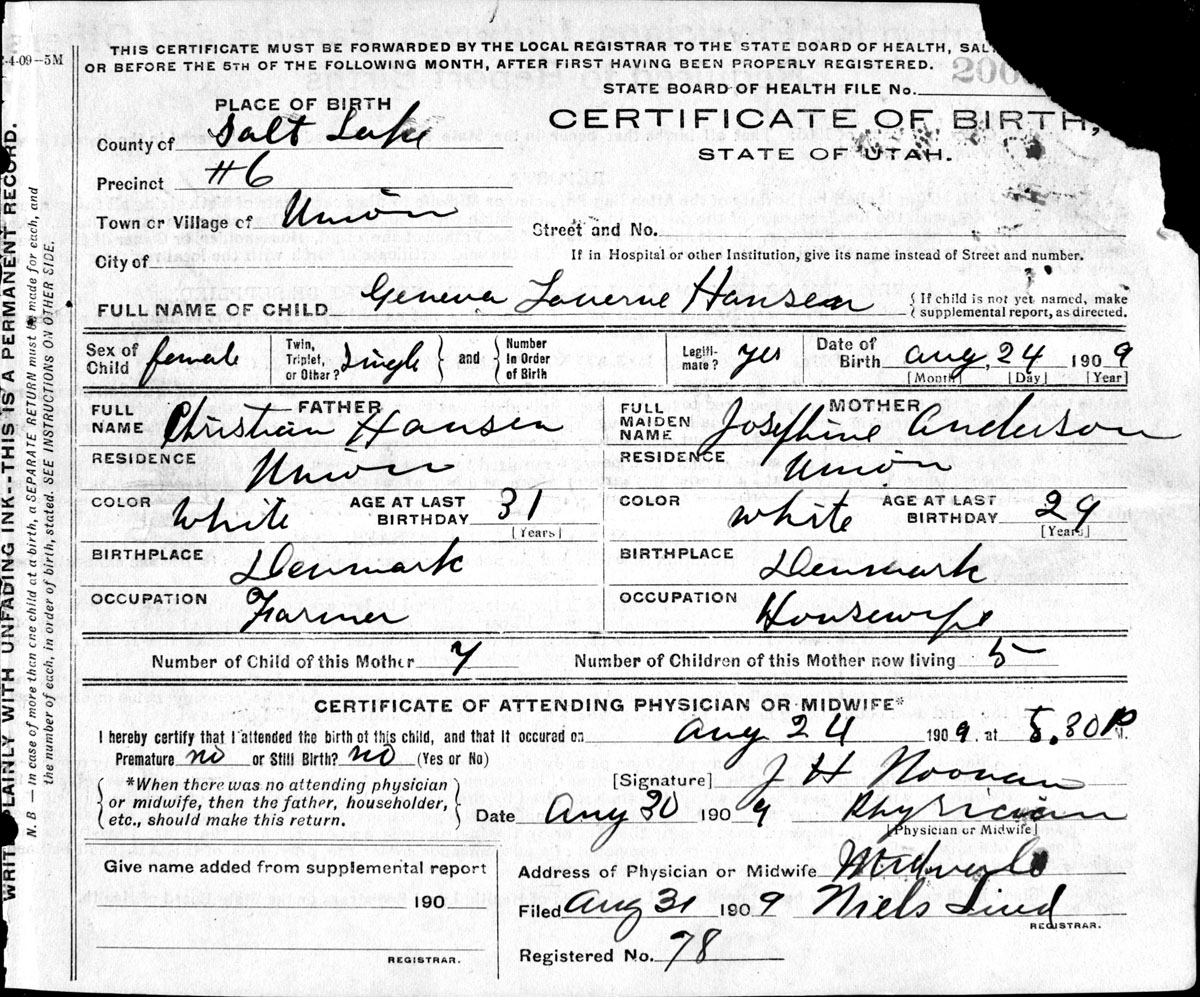 2-4-09—5M
THIS CERTIFICATE MUST BE FORWARDED BY THE LOCAL REGISTRAR TO THE STATE BOARD OF HEALTH, SAL
OR BEFORE THE 5TH OF THE FOLLOWING MONTH, AFTER FIRST HAVING BEEN PROPERLY REGISTERED.
200
STATE BOARD OF HEALTH FILE No.
PLACE OF BIRTH
CERTIFICATE OF BIRTH,
STATE OF UTAH.
County of Salt Lake
Precinct #6
Town or Village of Union
Street and No.
City of
If in Hospital or other Institution, give its name instead of Street and number.
FULL NAME OF CHILD Geneva Laverne Hansen { If child is not yet named, make supplemental report, as directed.
Sex of Child female Twin, Triplet, or Other? Single } and { Number In Order of Birth Legiti- mate? yes Date of Birth Aug, 24 1909
[Month] [Day] [Year]
FATHER
FULL NAME Christian Hansen
RESIDENCE Union
COLOR White AGE AT LAST BIRTHDAY 31 [Years]
BIRTHPLACE Denmark
OCCUPATION Farmer
MOTHER
FULL MAIDEN NAME Josephine Anderson
RESIDENCE Union
COLOR White AGE AT LAST BIRTHDAY 29 [Years]
BIRTHPLACE Denmark
OCCUPATION Housewife
Number of Child of this Mother 7 Number of Children of this Mother now living 5
CERTIFICATE OF ATTENDING PHYSICIAN OR MIDWIFE*
I hereby certify that I attended the birth of this child, and that it occured on Aug 24 1909. at 5.30 P M.
Premature no or Still Birth? no (Yes or No)
[Signature] J H Noonan
{ *When there was no attending physician
or midwife, then the father, householder,
etc., should make this return. }
Date Aug 30 1909 Physician
[Physician or Midwife]
Give name added from supplemental report
190
REGISTRAR.
Address of Physician or Midwife Midvale
Filed Aug 31 1909 Niels Lind
REGISTRAR.
Registered No. 78
WRITE PLAINLY WITH UNFADING INK--THIS IS A PERMANENT RECORD.
N.B — In case of more than one child at a birth, a SEPARATE RETURN must be made for each, and
the number of each, in order of birth, stated. SEE INSTRUCTIONS ON OTHER SIDE.